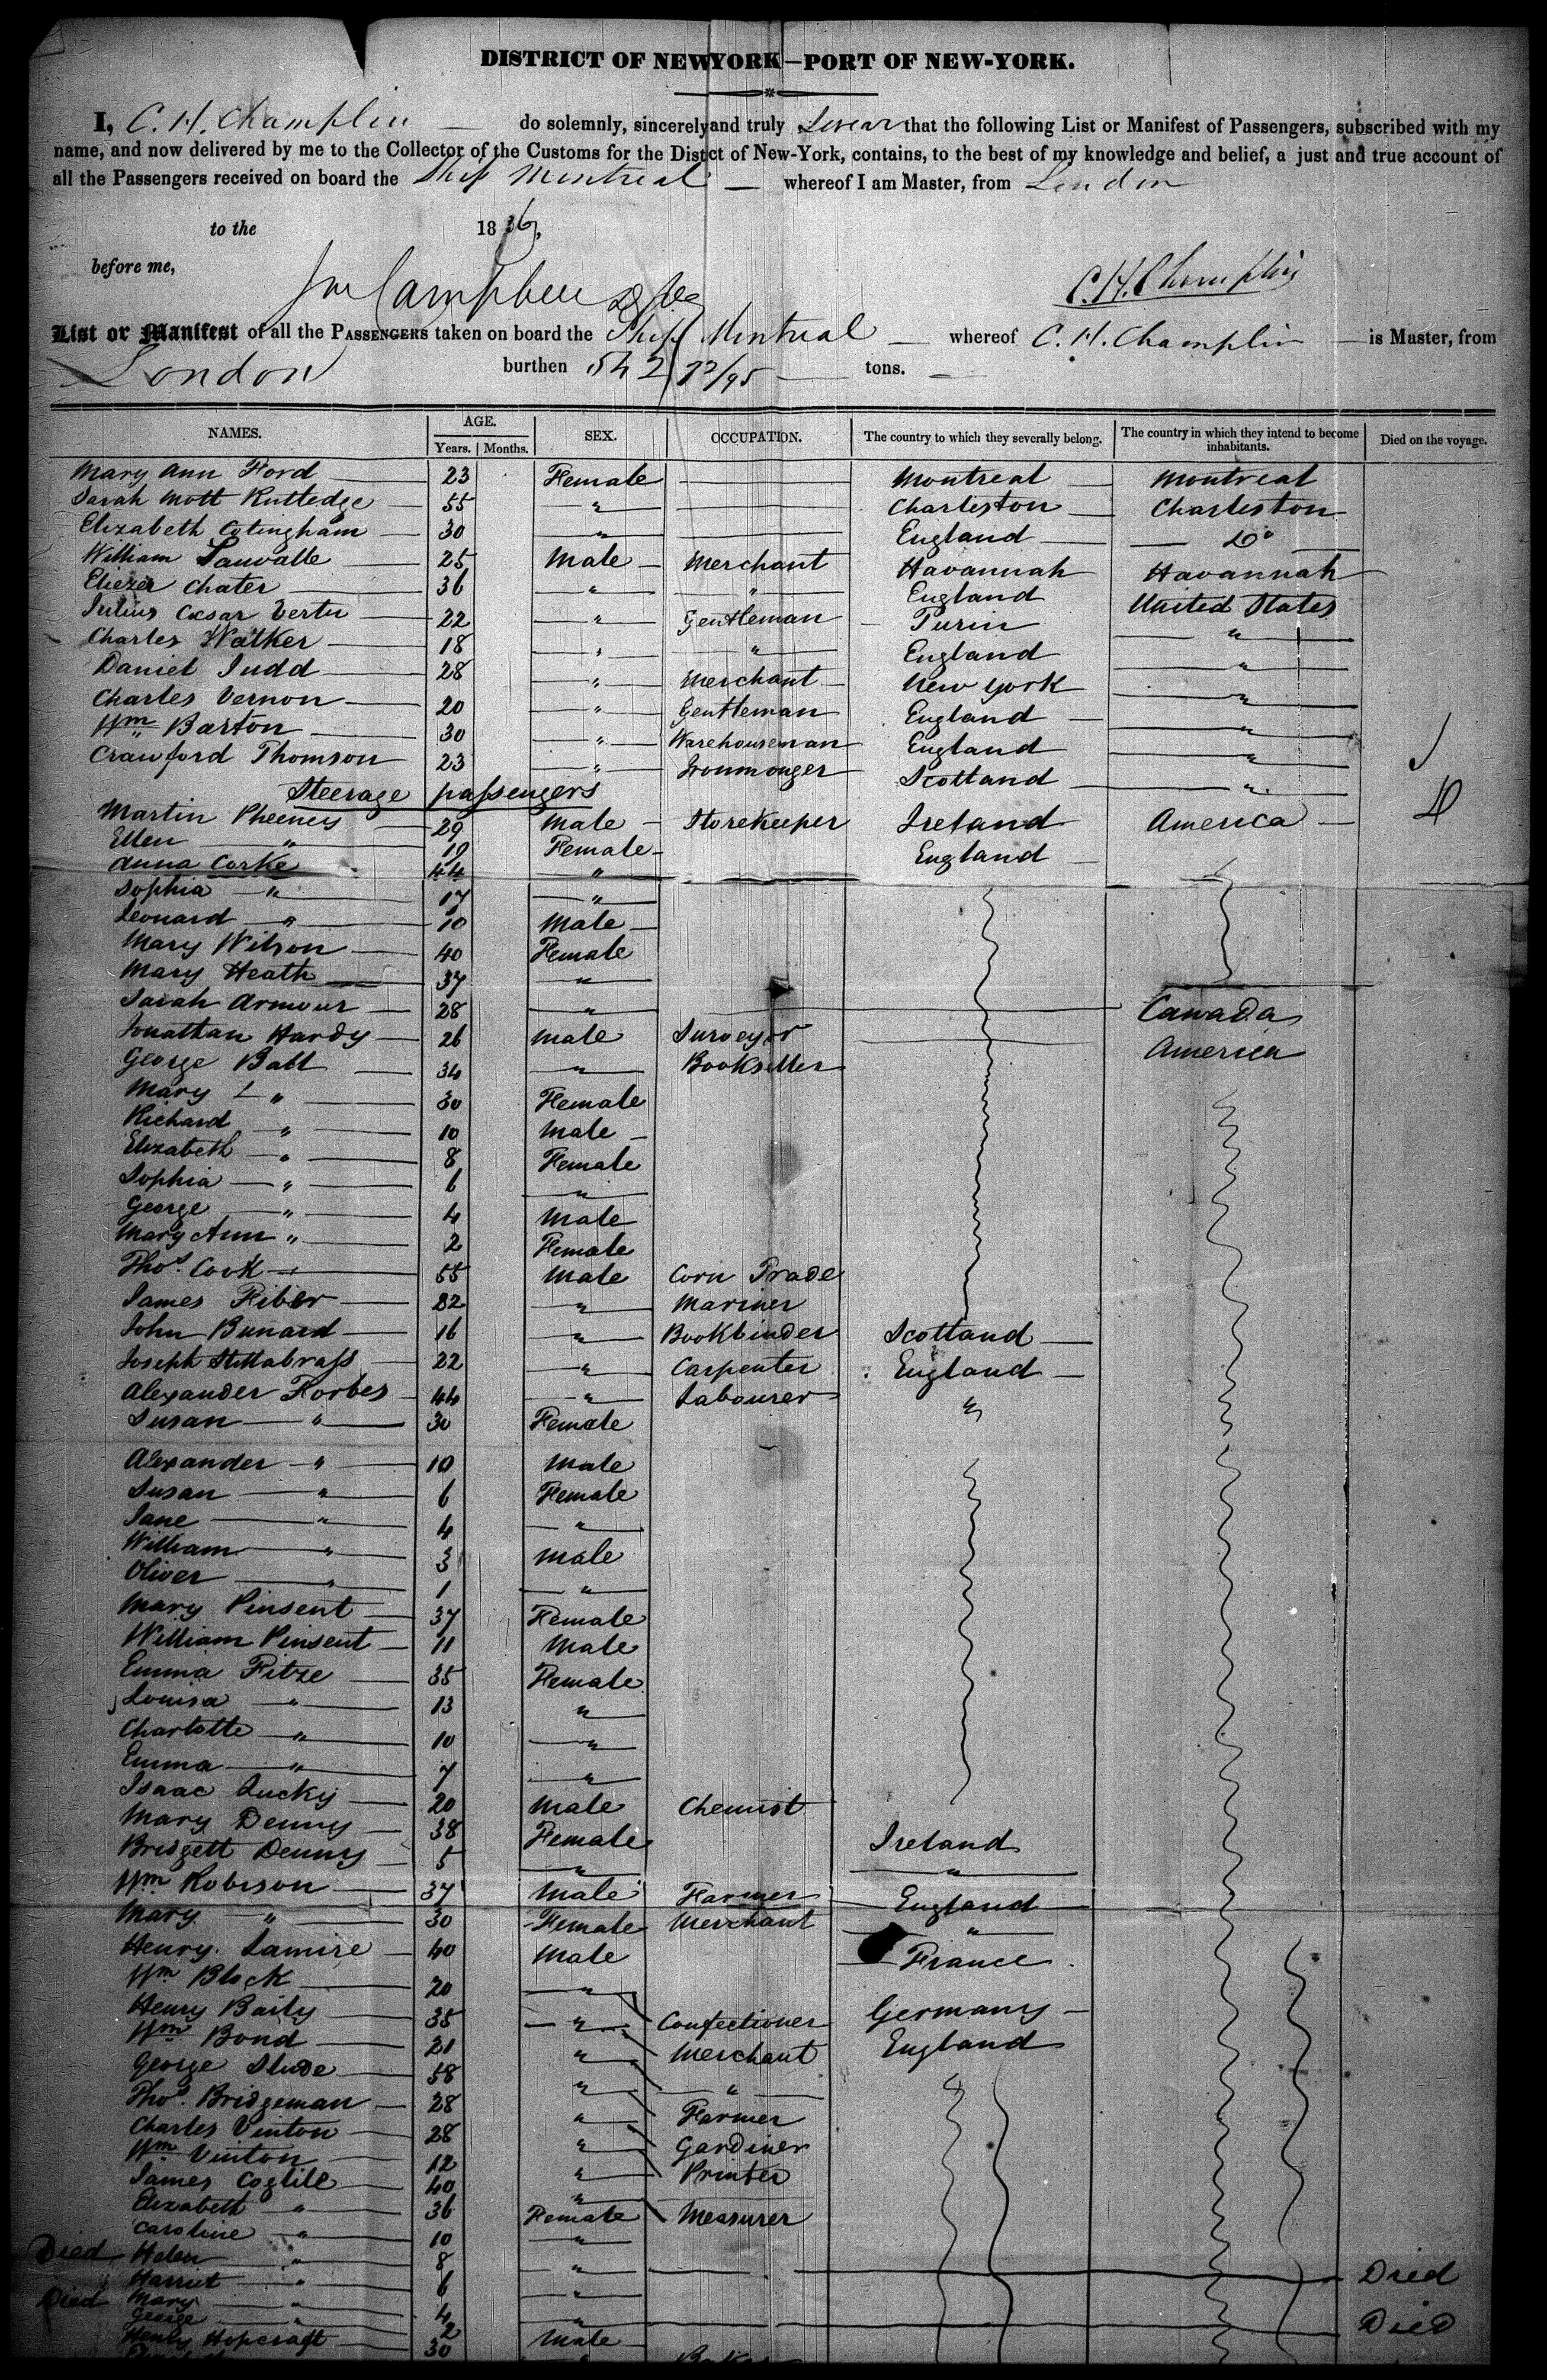 DISTRICT OF NEW YORK—PORT OF NEW-YORK.
I, C. H. Champlin do solemnly, sincerely and truly Swear that the following List or Manifest of Passengers, subscribed with my
name, and now delivered by me to the Collector of the Customs for the Distict of New-York, contains, to the best of my knowledge and belief, a just and true account of
all the Passengers received on board the Ship Montreal whereof I am Master, from London
to the 1836,
before me,
Campbell C. H. Champlin
List or Manifest of all the PASSENGERS taken on board the Ship Montreal whereof C. H. Champlin is Master, from
London burthen 542 72/95 tons.
NAMES. AGE. Years. Months. SEX. OCCUPATION. The country to which they severally belong. The country in which they intend to become inhabitants. Died on the voyage.
Mary Ann Ford 23 Female Montreal Montreal
Sarah Mott Rutledge 55 " Charleston Charleston
Elizabeth Cotingham 30 " England Do
William Sauvalle 25 Male Merchant Havannah Havannah
Eliezer Chater 36 " " England United States
Julius Cæsar Vertu 22 " Gentleman Turin "
Charles Walker 18 " " England "
Daniel Judd 28 " Merchant New York "
Charles Vernon 20 " Gentleman England "
Wm Barton 30 " Warehouseman England "
Crawford Thomson 23 " Ironmonger Scotland "
Steerage passengers
Martin Pheeney 29 Male Storekeeper Ireland America
Ellen " 19 Female England
Anna Corke 44 "
Sophia " 17 "
Leonard " 10 Male
Mary Wilson 40 Female
Mary Heath 37 "
Sarah Armour 28 " Canada
Jonathan Hardy 26 Male Surveyor America
George Ball 34 " Bookseller
Mary L " 30 Female
Richard " 10 Male
Elizabeth " 8 Female
Sophia " 6 "
George " 4 Male
Mary Ann " 2 Female
Thos. Cook 55 Male Corn Trade
James Fiber 32 " Mariner
John Bunard 16 " Bookbinder Scotland
Joseph Stillabrass 22 " Carpenter England
Alexander Forbes 44 " Labourer "
Susan " 30 Female
Alexander " 10 Male
Susan " 6 Female
Jane " 4 "
William " 3 Male
Oliver " 1 "
Mary Pinsent 37 Female
William Pinsent 11 Male
Emma Fitze 35 Female
Louisa " 13 "
Charlotte " 10 "
Emma " 7 "
Isaac Lucky 20 Male Chemist
Mary Denny 38 Female Ireland
Bridgett Denny 5 " "
Wm Robison 37 Male Farmer England
Mary " 30 Female Merchant "
Henry Lamire 40 Male France
Wm Block 20 "
Henry Baily 35 " Confectioner Germany
Wm Bond 21 " Merchant England
George Slude 58 " "
Thos. Bridgeman 28 " Farmer
Charles Vinton 28 " Gardiner
Wm Vinton 12 " Printer
James Coglill 40 "
Elizabeth " 36 Female Measurer
Caroline " 10 "
Died Helen " 8 " Died
Harriet " 6 "
Died Mary " 4 " Died
George " 2 Male
Henry Hopcraft 30